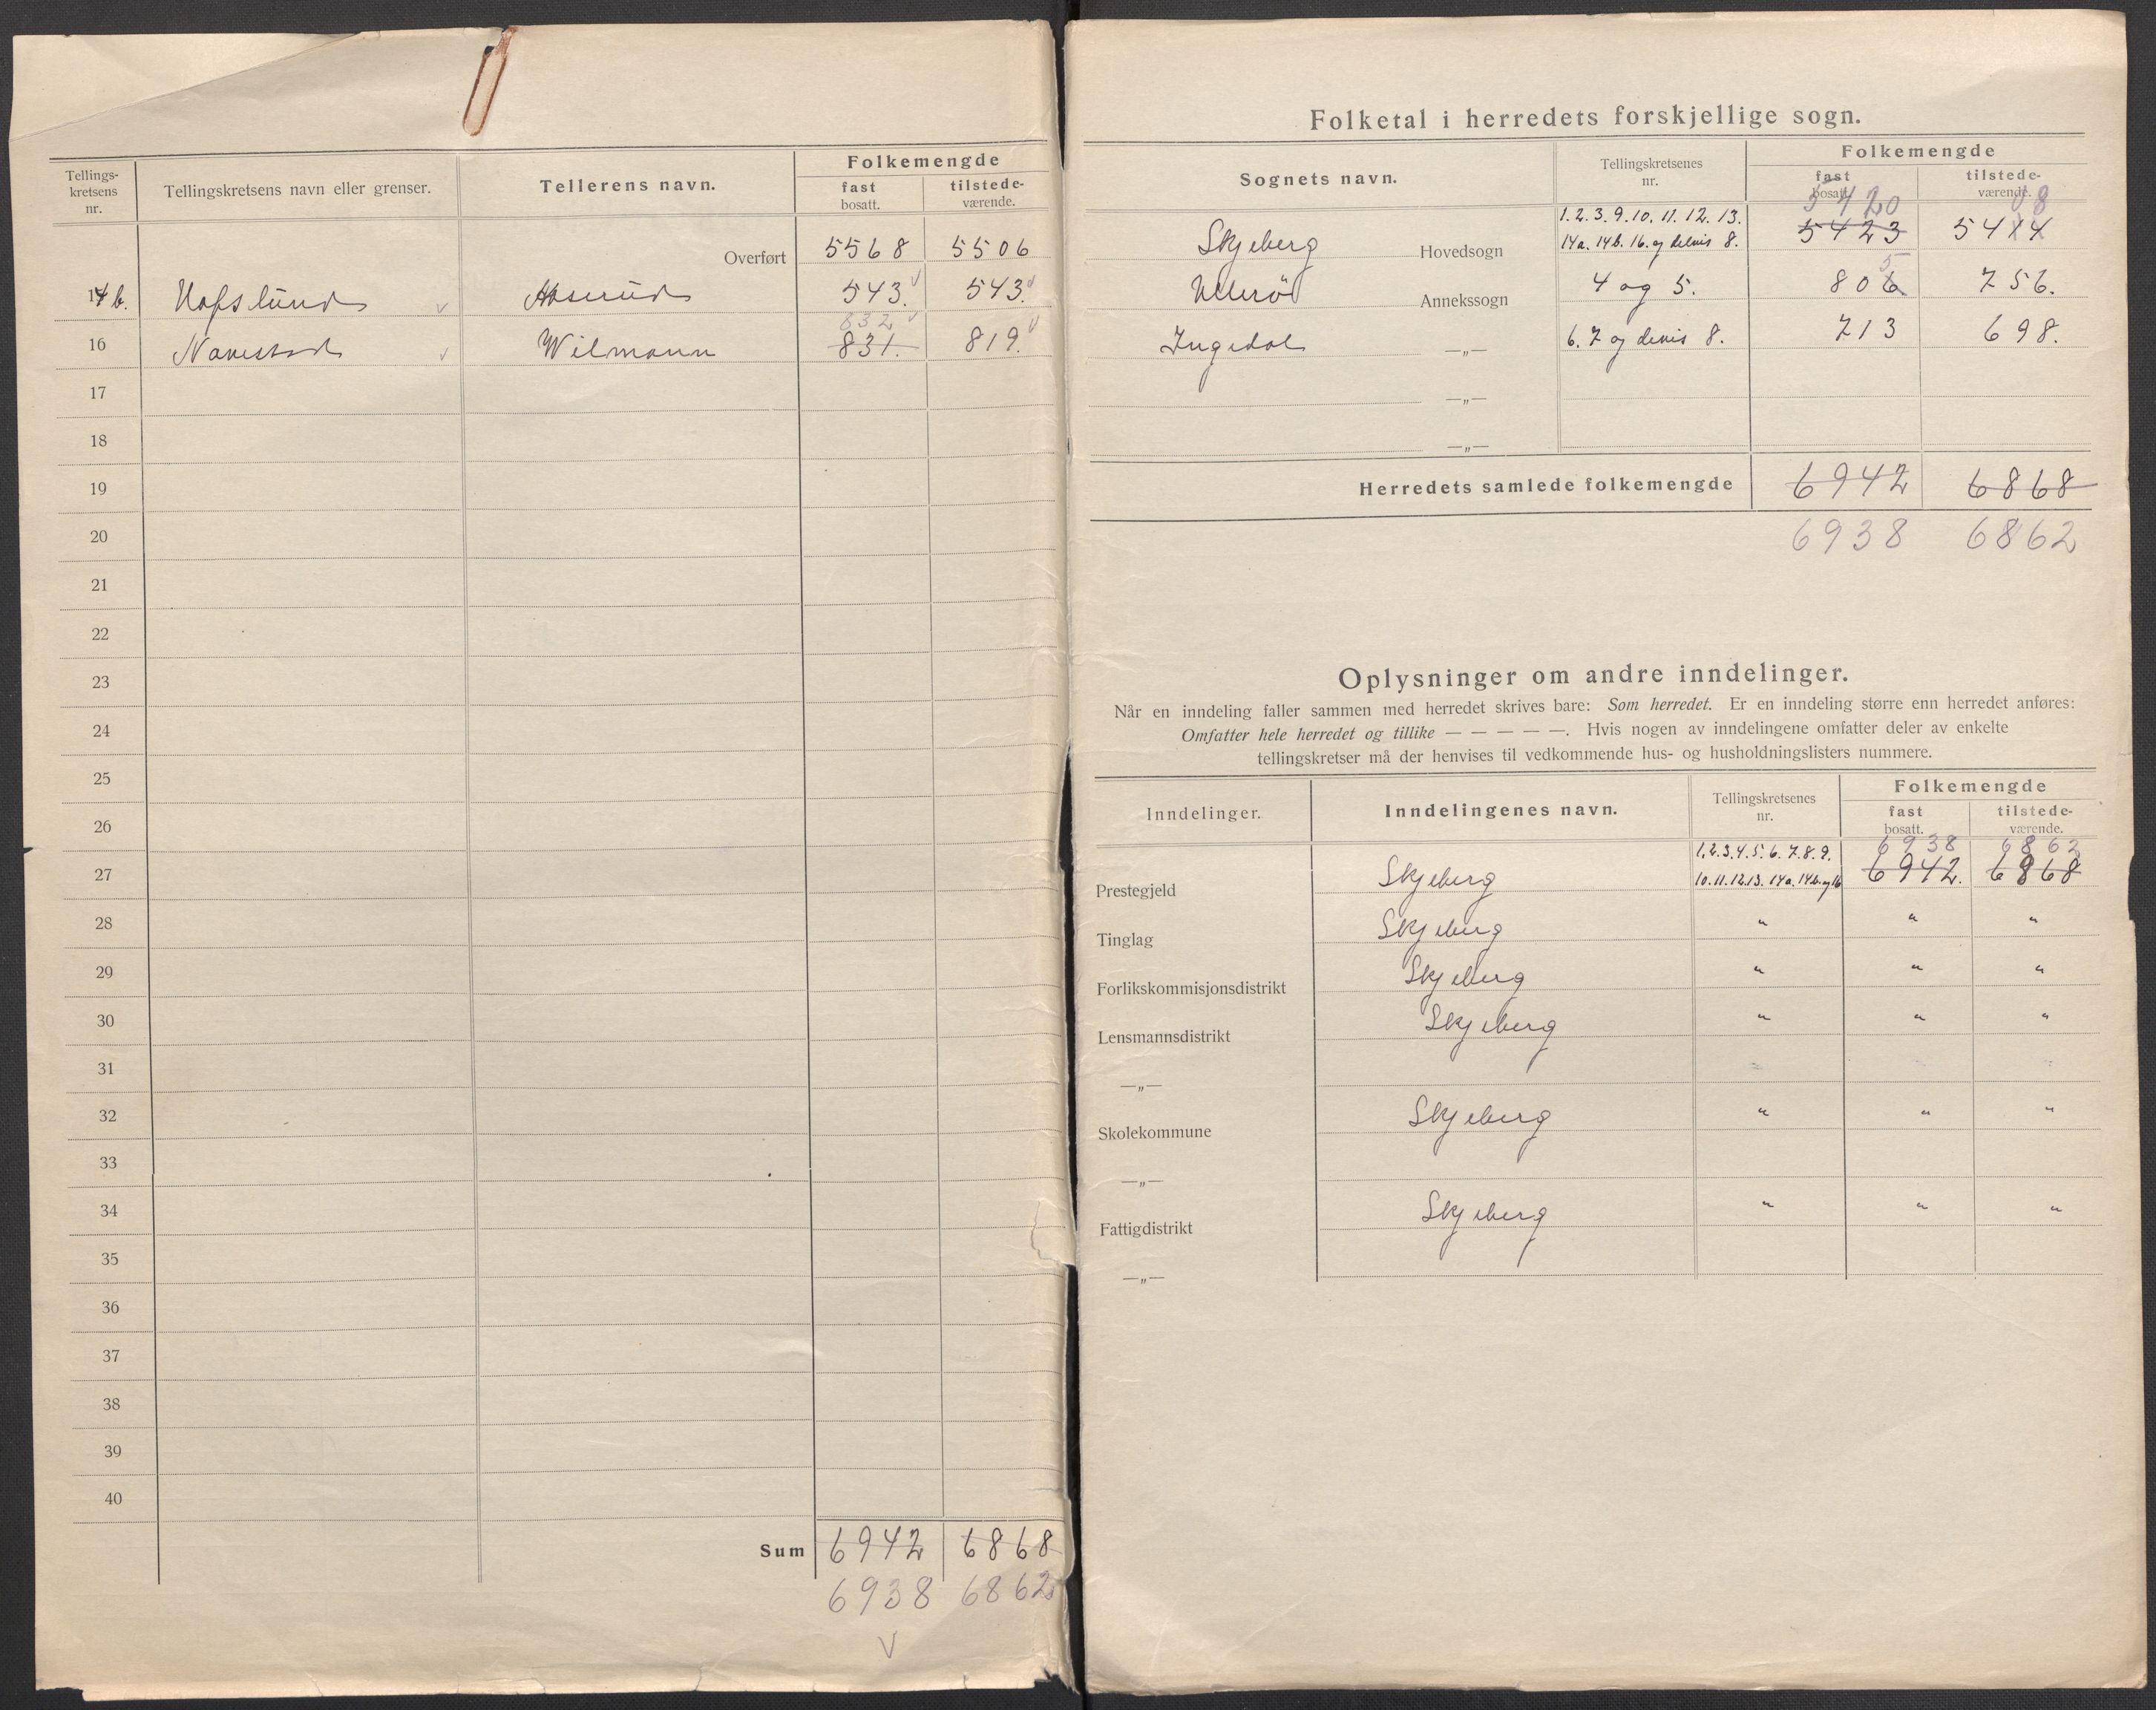 Tellings-
kretsens
nr.
Tellingskretsens navn eller grenser.
Tellerens navn.
Folkemengde
fast
bosatt.
tilstede-
værende.
Overført 5568 5506
14b. Hafslund v 543. v 543. v
832 v
16 Navestad v Wilmann 831. 819. v
17
18
19
20
21
22
23
24
25
26
27
28
29
30
31
32
33
34
35
36
37
38
39
40
Sum 6942 6868
6938 6862
V
Folketal i herredets forskjellige sogn.
Sognets navn.
Tellingskretsenes
nr.
Folkemengde
fast
bosatt.
tilstede-
værende.
5420 08
1. 2. 3. 9. 10. 11. 12. 13.
Skjeberg Hovedsogn 14a. 14b. 16. og delvis 8. 5423 5414
5
Ullerö Annekssogn 4 og 5. 806. 756.
Ingedal —„— 6. 7 og delvis 8. 713 698.
—„—
—„—
Herredets samlede folkemengde 6942 6868
6938 6862
Oplysninger om andre inndelinger.
Når en inndeling faller sammen med herredet skrives bare: Som herredet. Er en inndeling større enn herredet anføres:
Omfatter hele herredet og tillike — — — — —. Hvis nogen av inndelingene omfatter deler av enkelte
tellingskretser må der henvises til vedkommende hus- og husholdningslisters nummere.
Inndelinger.
Inndelingenes navn.
Tellingskretsenes
nr.
Folkemengde
fast
bosatt.
tilstede-
værende.
1. 2. 3. 4. 5. 6. 7. 8. 9. 6938 6862
Prestegjeld Skjeberg 10. 11. 12. 13. 14a. 14b. og 16 6942. 6868
Tinglag Skjeberg " " "
Forlikskommisjonsdistrikt Skjeberg " " "
Lensmannsdistrikt Skjeberg " " "
—„—
Skolekommune Skjeberg " " "
—„—
Fattigdistrikt Skjeberg " " "
—„—